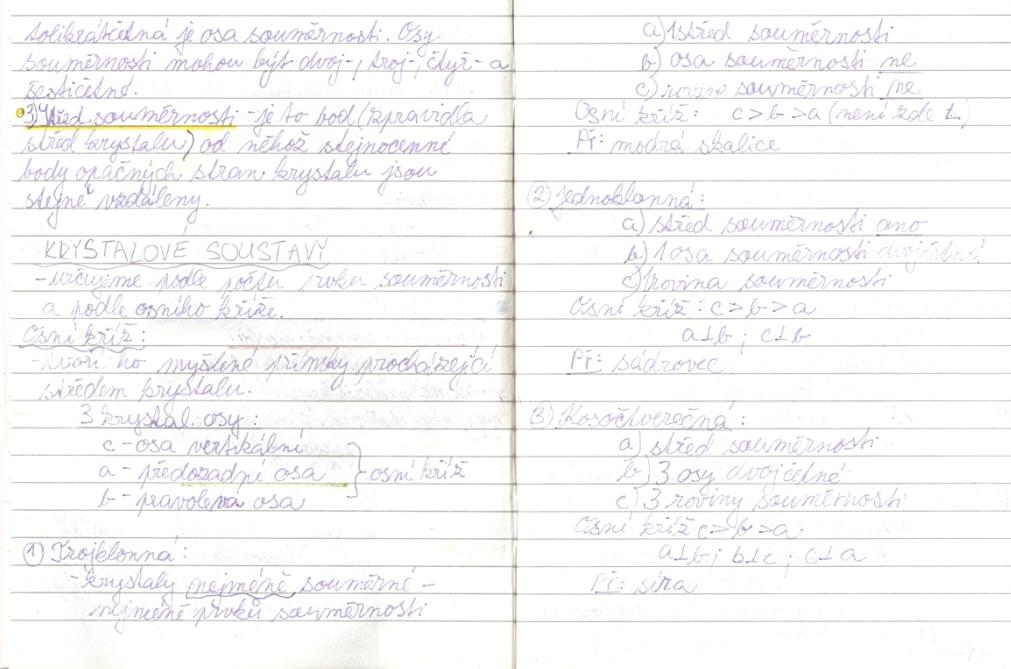 tolikráčetná je osa souměrnosti. Osy
souměrnosti mohou být dvoj-, troj-, čtyř- a
šestičetné.
3) Střed souměrnosti - je to bod (zpravidla
střed krystalu) od něhož stejnocenné
body opačných stran krystalu jsou
stejně vzdáleny.
KRYSTALOVÉ SOUSTAVY
- určujeme podle počtu prvků souměrnosti
a podle osního kříže.
Osní kříž:
- tvoří ho myšlené přímky procházející
středem krystalu.
3 krystal. osy:
c - osa vertikální
a - předozadní osa } osní kříž
b - pravolevá osa
① Trojklonná:
- krystaly nejméně souměrné -
nejméně prvků souměrnosti
a) 1 střed souměrnosti
b) osa souměrnosti ne
c) rovina souměrnosti ne
Osní kříž: c > b > a (není zde ⊥)
Př: modrá skalice
② Jednoklonná:
a) střed souměrnosti ano
b) 1 osa souměrnosti dvojčetná
c) 1 rovina souměrnosti
Osní kříž: c > b > a
a⊥b ; c⊥b
Př: sádrovec
③ Kosočtverečná:
a) střed souměrnosti
b) 3 osy dvojčetné
c) 3 roviny souměrnosti
Osní kříž c > b > a
a⊥b ; b⊥c ; c⊥a
Př: síra